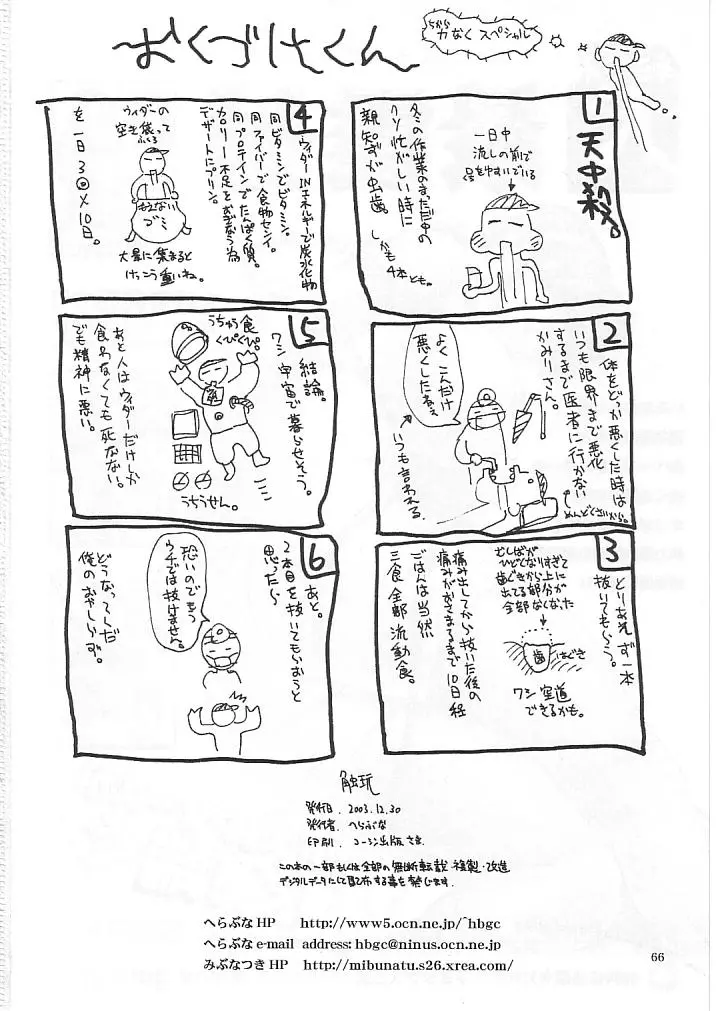 おくづけくん
ちから
力なく スペシャル
1
天中殺。
一日中
流しの前で
冬の作業のまっただ中の
クソ忙がしい時に
親知らずが虫歯。
しかも4本とも。
2
体をどっか悪くした時は
いつも限界まで悪化
するまで医者に行かない
かみりさん。
めんどくさいから。
よくこんだけ
悪くしたねぇ
いつも言われる
3
とりあえず一本
抜いてもらう。
むしばが
ひどくなりすぎて
歯ぐきから上に
出てる部分が
全部なくなった
歯
はぐき
ワシ 空道
できるかも。
痛み出してから抜いた後の
痛みがおさまるまで10日経
ごはんは当然
三食全部流動食。
4
ウィダーINエネルギーで炭水化物
同ビタミンでビタミン。
同ファイバーで食物センイ。
同プロテインでたんぱく質。
カロリー不足をおぎなう為
デザートにプリン。
ウィダーの
空き袋って
もえない
ゴミ
大量に集まると
けっこう重いね。
を一日3回×10日。
5
結論。
ワシ宇宙で暮らせそう。
うちゅう食
くぴくぴ。
うちうせん。
あと人はウィダーだけしか
食わなくても死なない。
でも精神に悪い。
6
あと。
2本目を抜いてもらおうと
思ったら
恐いのでもう
ウチでは抜けません。
どうなってんだ
俺のおやしらず。
触玩
発行日. 2003.12.30
発行者. へらぶな
印刷. コーシン出版さま
この本の一部もしくは全部の無断転載・複製・改造
デジタルデータにして配布する事を禁じます.
へらぶなHP http://www5.ocn.ne.jp/~hbgc
へらぶなe-mail address: hbgc@ninus.ocn.ne.jp
みぶなつきHP http://mibunatu.s26.xrea.com/
66